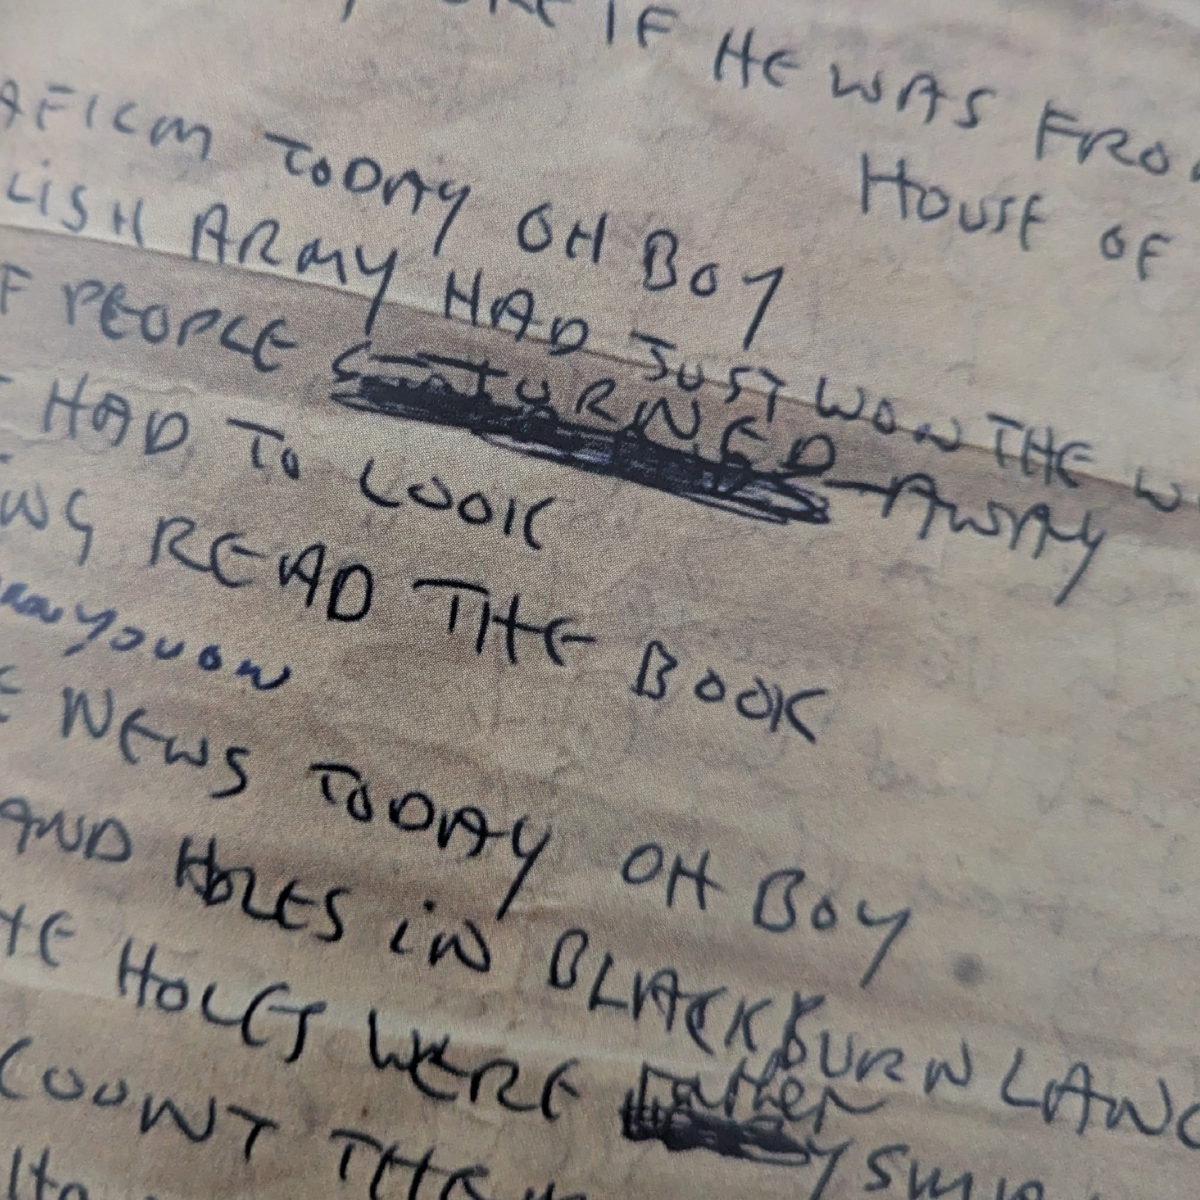 IF HE WAS FRO
HOUSE OF
A FILM TODAY OH BOY
LISH ARMY HAD JUST WON THE W
F PEOPLE TURNED AWAY
HAD TO LOOK
READ THE BOOK
you on
NEWS TODAY OH BOY
AND HOLES IN BLACKBURN LANC
HE HOLES WERE rather SMA
COUNT THE